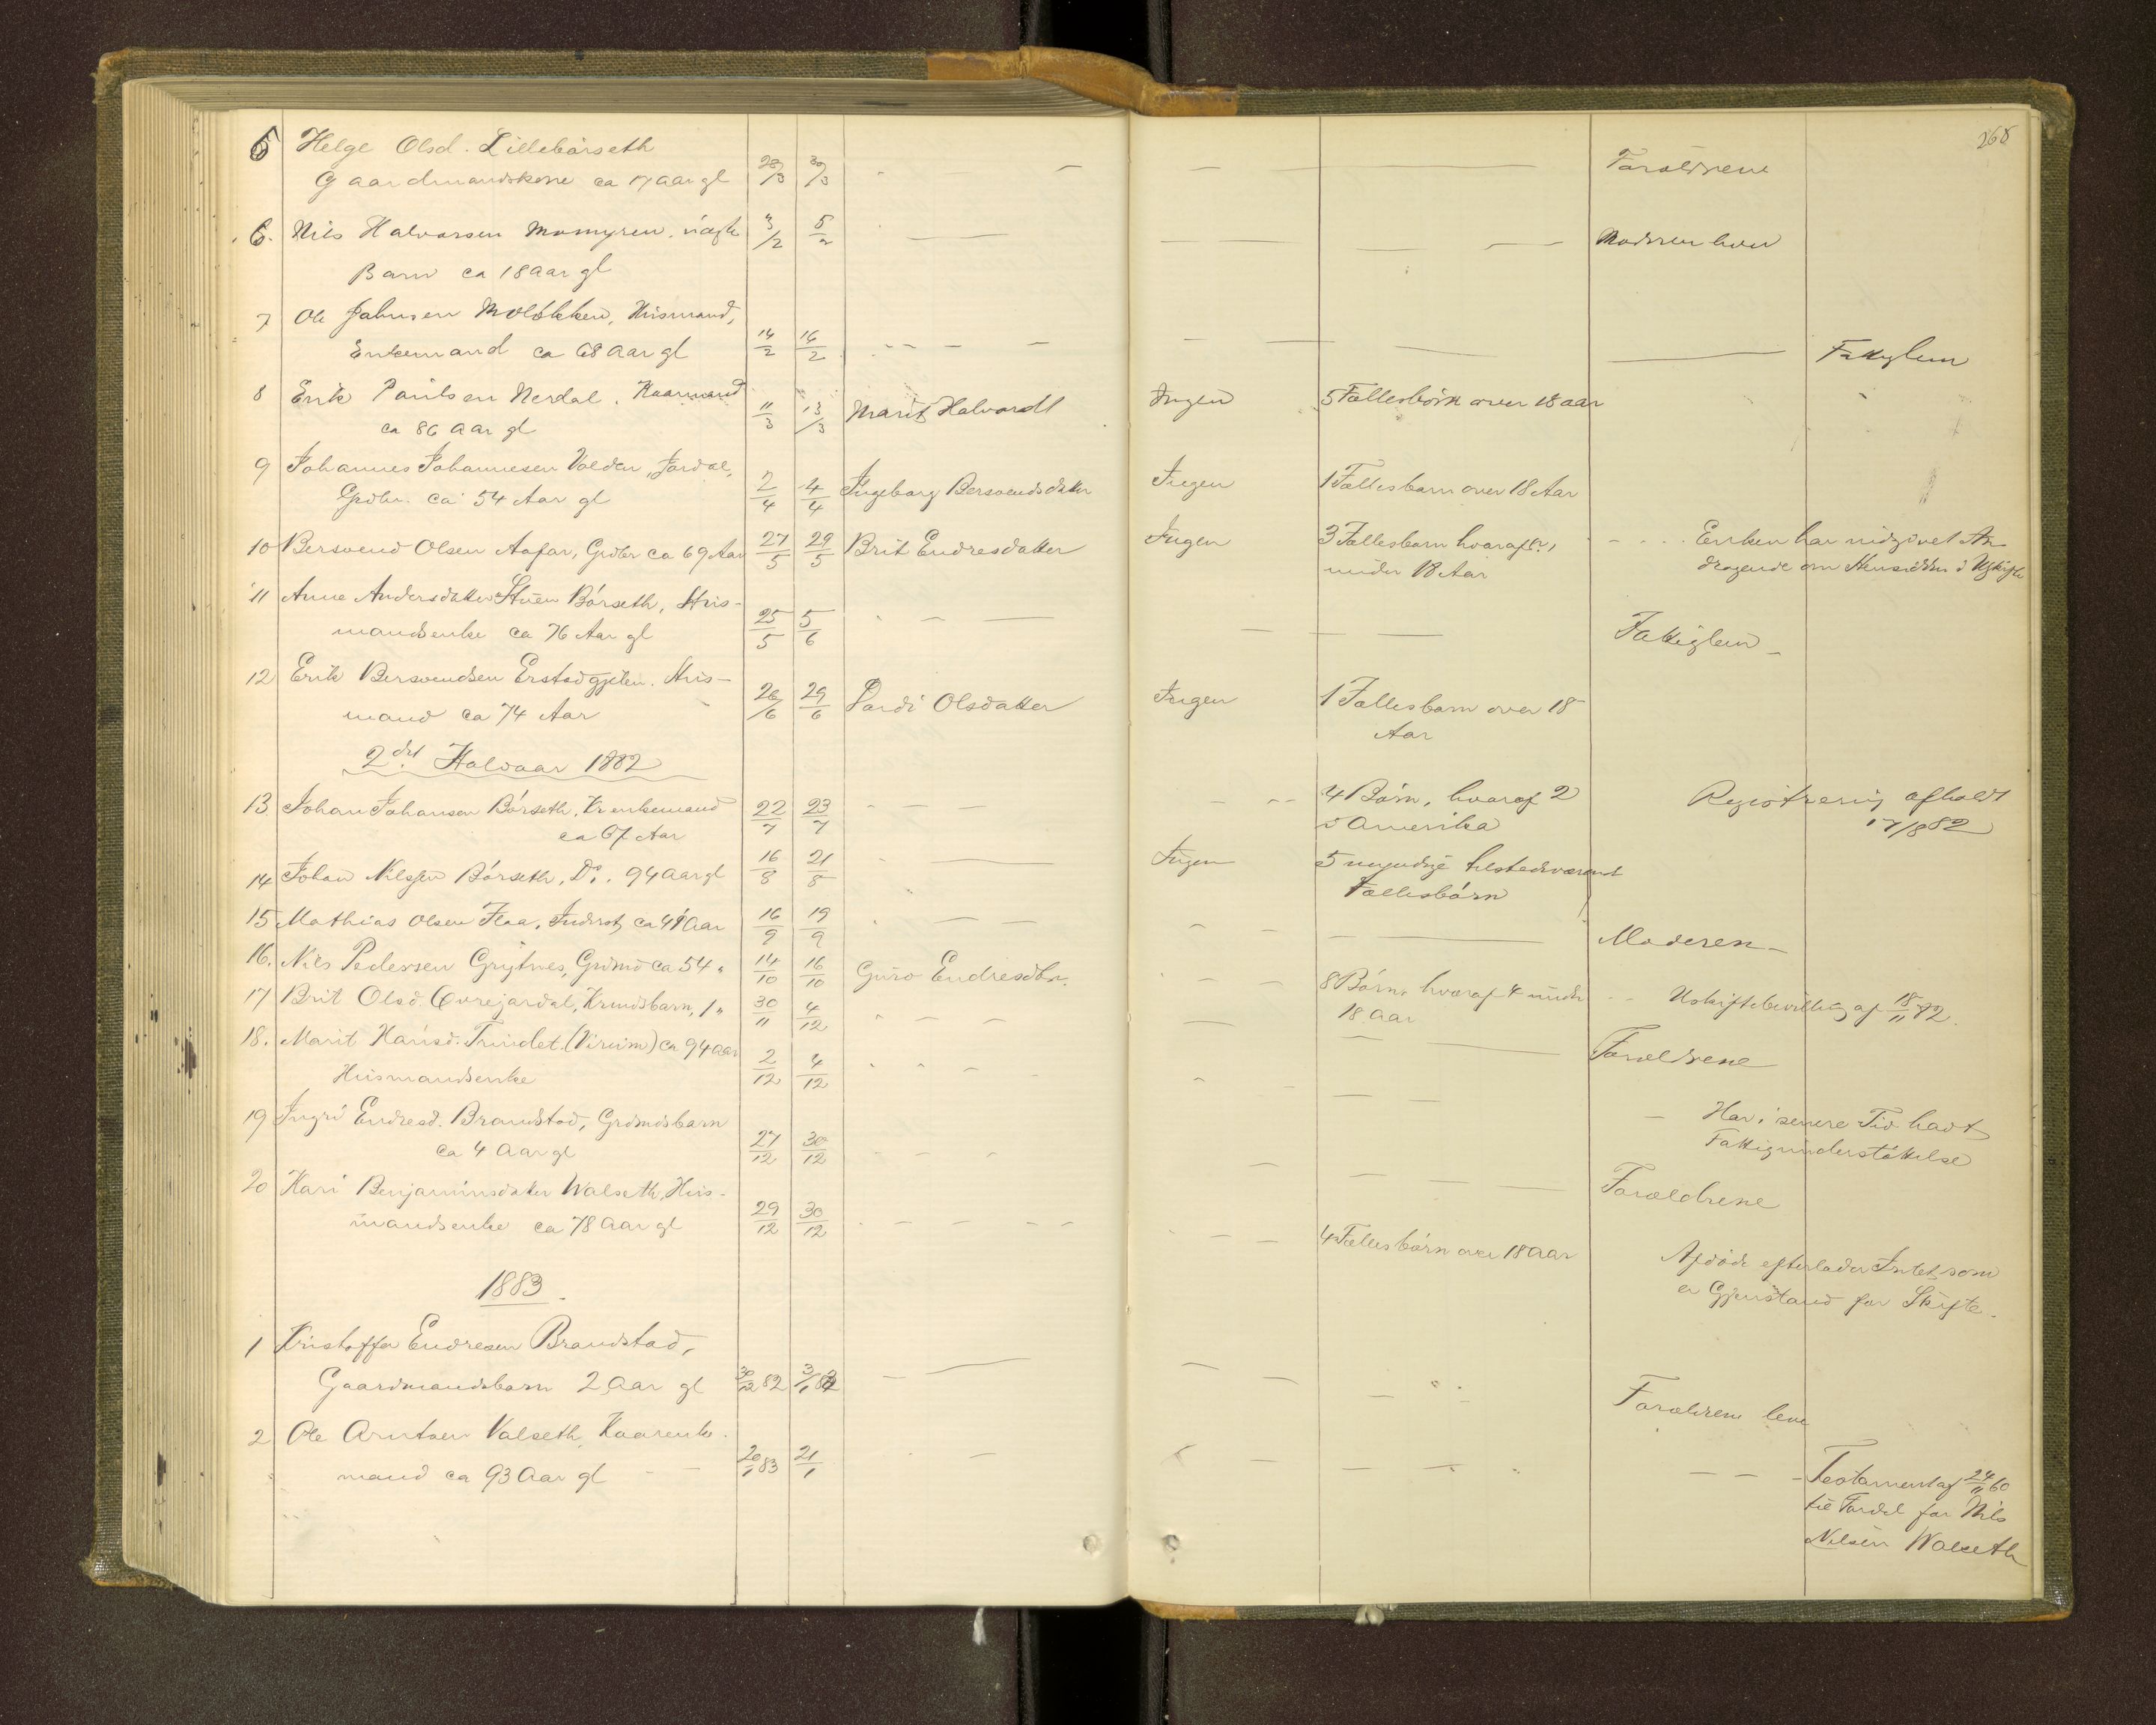 268
5 Helge Olsd. Lillebórseth
Gaardmandskone ca 17 aar gl 28/3 30/3 Forældrene
6. Nils Halvorsen Momyren, 3/2 5/2 Modren lever
Barn ca 18 aar gl
7 Ole Johnsen Moløkken, Husmand,
Enkemand ca 68 aar gl 14/2 16/2 Fattiglem
8 Erik Paulsen Nerdal, Kaarmand 11/3 13/3 Marit Halvordt Ingen 5 Fællesbörn over 18 aar
ca 86 aar gl
9 Johannes Johannesen Volden, Jordal,
Grdbr. ca 54 Aar gl 2/4 4/4 Ingeborg Bersvendsdatter Ingen 1 Fællesbarn over 18 Aar
10 Bersvend Olsen Aafar, Grdbr ca 69 Aar 27/5 29/5 Brit Endresdatter Ingen 3 Fællesbarn hvoraf
under 18 Aar
Enken har indgivet An
dragende om Hensidden i Uskifte
11 Anne Andersdatter Stuen Bórseth, Hus-
mandsenke ca 76 Aar gl 25/5 5/6 Fattiglem
12 Erik Bersvendsen Erstadgjelen. Hus-
mand ca 74 Aar 26/6 29/6 Pardi Olsdatter Ingen 1 Fællesbarn over 18
Aar
2det Halvaar 1882
13 Johan Johansen Bórseth, Krenkemand 22/7 23/7 4 Börn, hvoraf 2
ca 67 Aar i Amerika
Registrering afholdt
17/8 82
14 Johan Nilssen Bórseth, Do. 94 aar gl 16/8 21/8 Ingen 5 myndige tilstedværende
Fællesbórn
15 Mathias Olsen Flaa, Inderst, ca 41 Aar 16/9 19/9 Moderen
16. Nils Pedersen Grytnes, Grdmd ca 54 " 14/10 16/10 Guro Endresdtr. 8 Börn, hvoraf 4 under
18 Aar
Uskiftebevilling af 18/11 82.
17 Brit Olsd. Øvrejordal, Krmdsbarn, 1 " 30/11 4/12 Forældrene
18. Marit Hansd. Trindet (Viruim) ca 94 aar
Husmandsenke 2/12 4/12 Har i senere Tid havt
Fattigunderstöttelse
19 Ingri Endresd. Brandstad, Grdmdsbarn
ca 4 Aar gl 27/12 30/12 Forældrene
20 Kari Benjaminsdatter Walseth, Hus-
mandsenke ca 78 Aar gl 29/12 30/12 4 Fællesbörn over 18 aar
Afdöde efterlader Intet, som
er Gjenstand for Skifte.
1883
1 Kristoffer Endresen Brandstad,
Gaardmandsbarn 2 Aar gl 30/12 82 3/1 83 Forældrene leve
2 Ole Arntsen Valseth, Kaarenke-
mand ca 93 Aar gl 20/1 83 21/1
Testament af 24/11 60
til Fordel for Nils
Nilsen Walseth